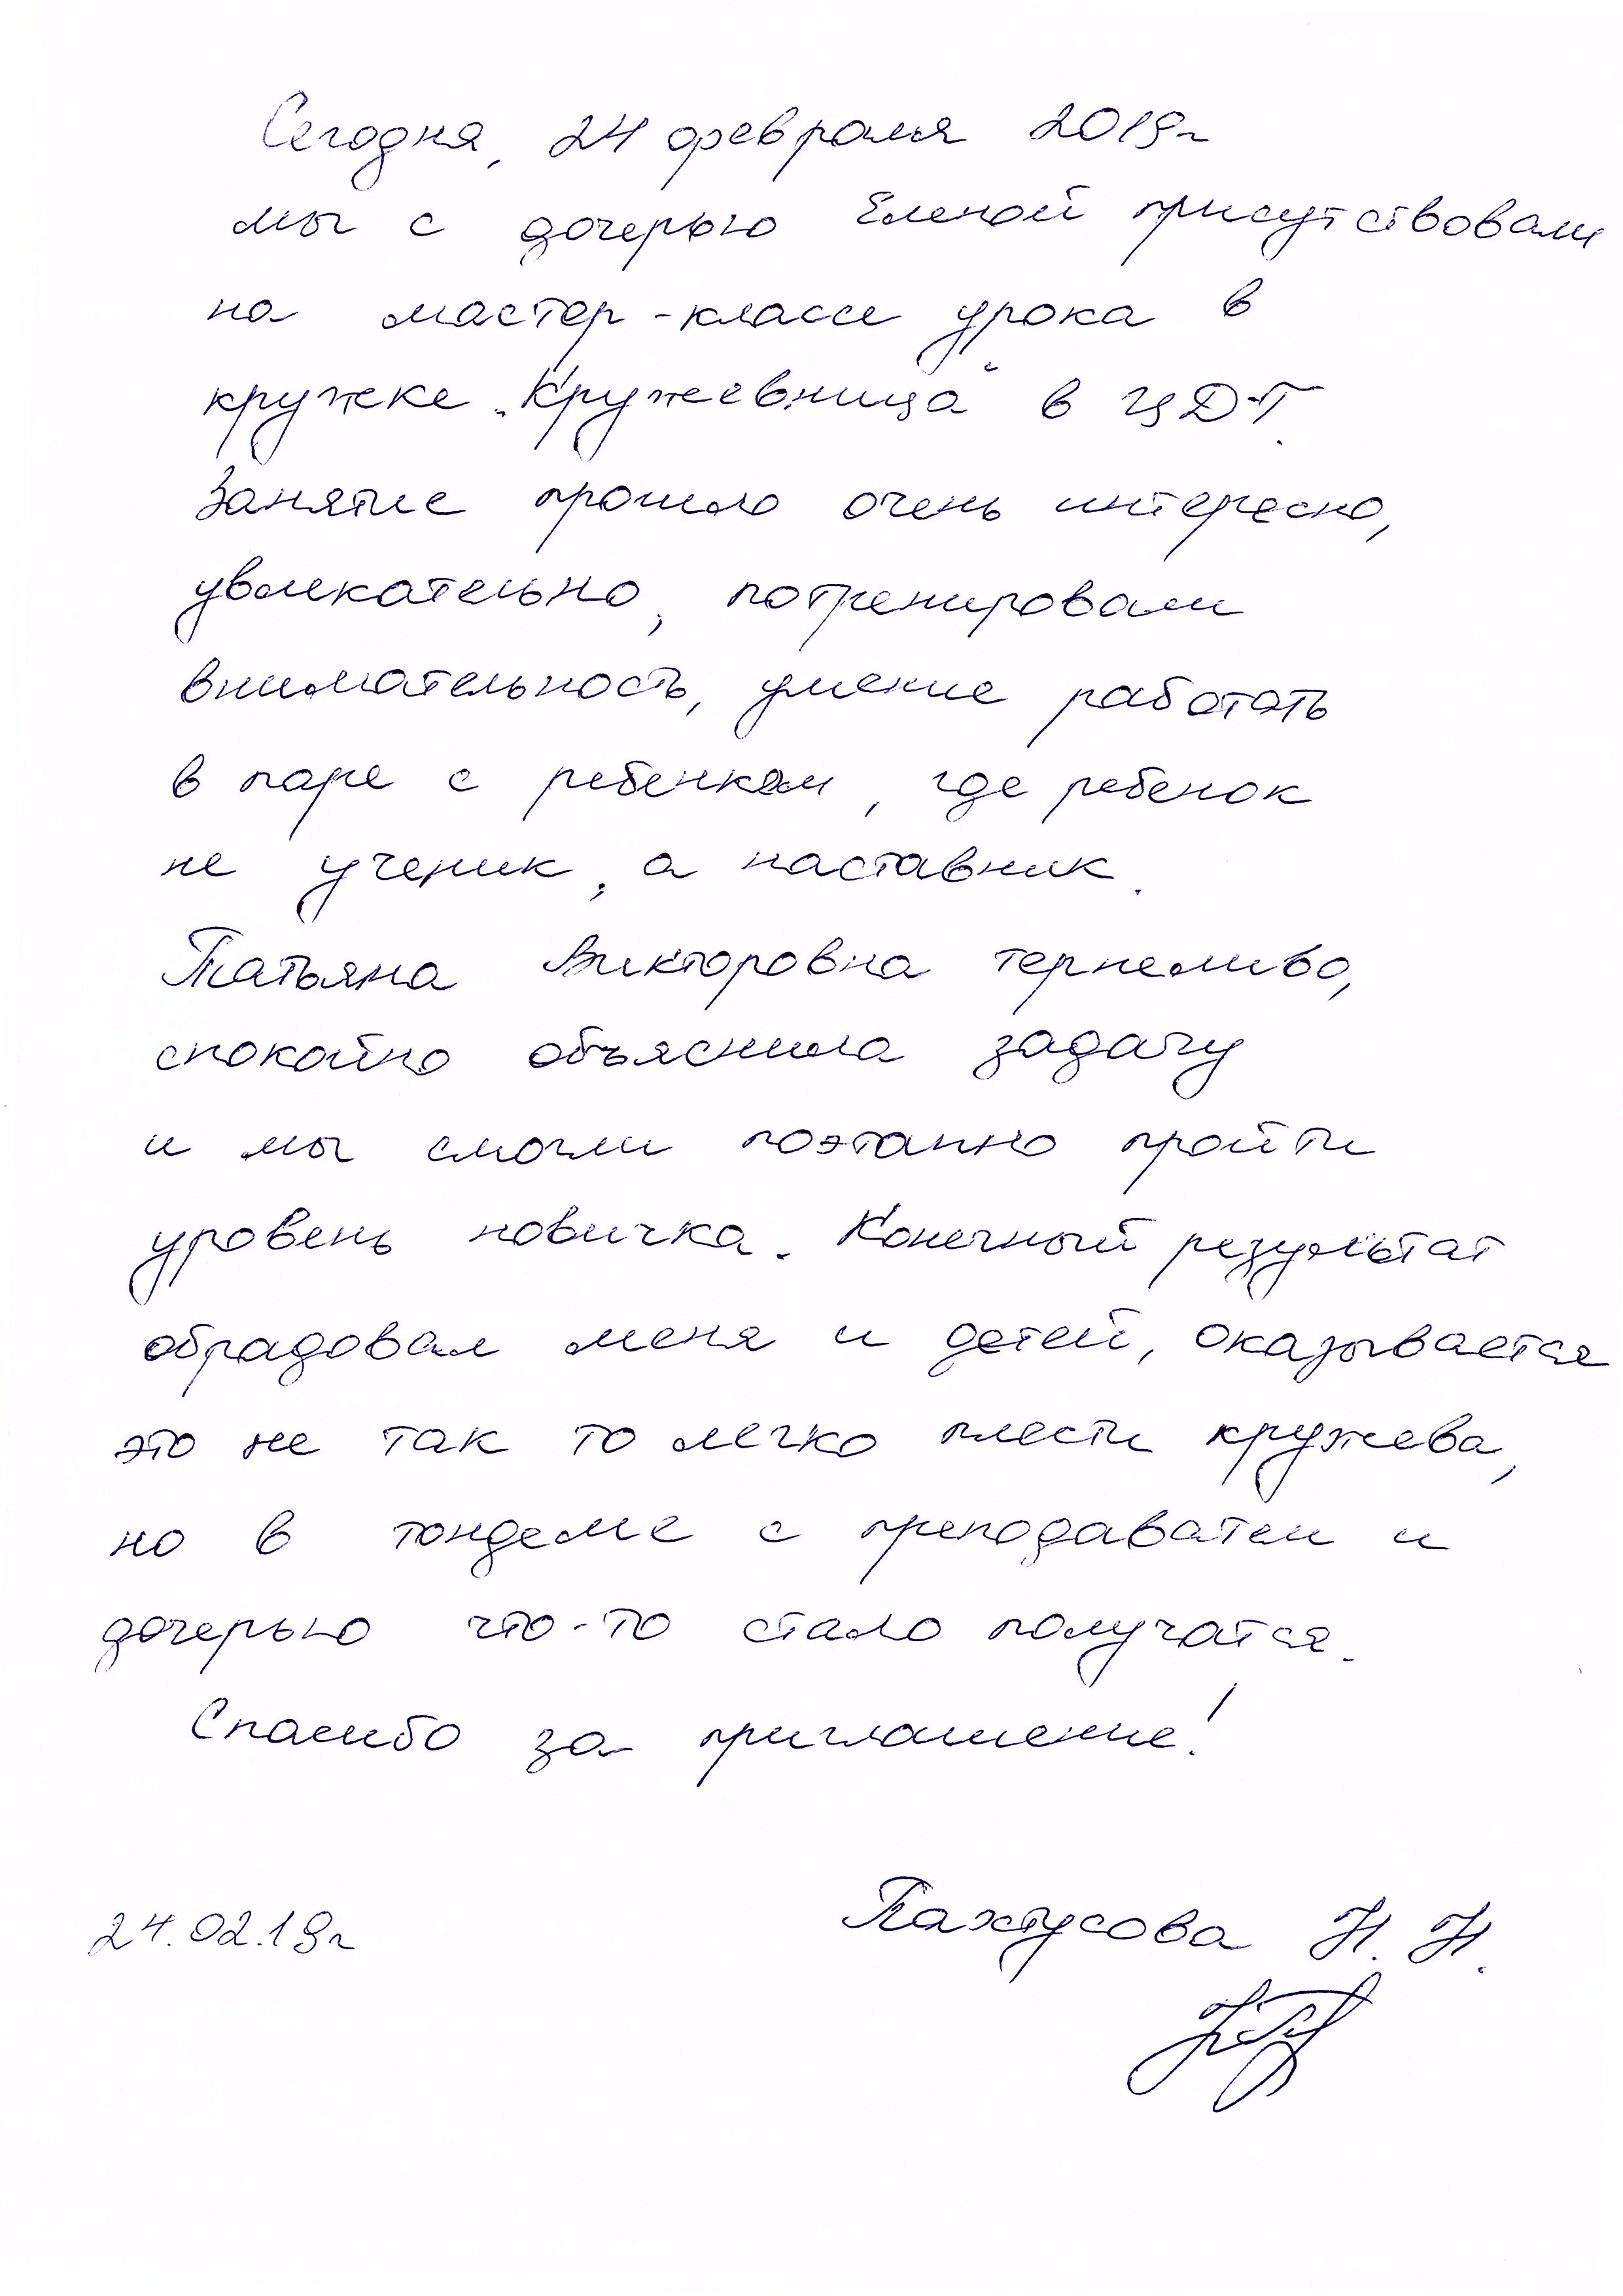 Сегодня, 24 февраля 2019г
мы с дочерью Еленой присутствовали
на мастер-классе урока в
кружке „Кружевница“ в ЦДТ.
Занятие прошло очень интересно,
увлекательно, потренировали
внимательность, умение работать
в паре с ребенком, где ребенок
не ученик, а наставник.
Татьяна Викторовна терпеливо,
спокойно объяснила задачу
и мы смогли поэтапно пройти
уровень новичка. Конечный результат
обрадовал меня и детей, оказывается
это не так то легко плести кружева,
но в тандеме с преподавателем и
дочерью что-то стало получатся.
Спасибо за приглашение!
24.02.19г
Пахтусова Н. Н.